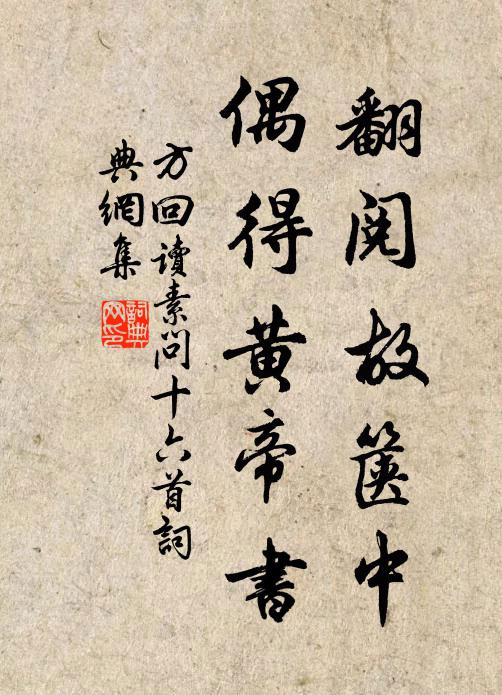 翻閱故篋中
偶得黃帝書
方回讀素問十六首詞
典網集
詞典網印